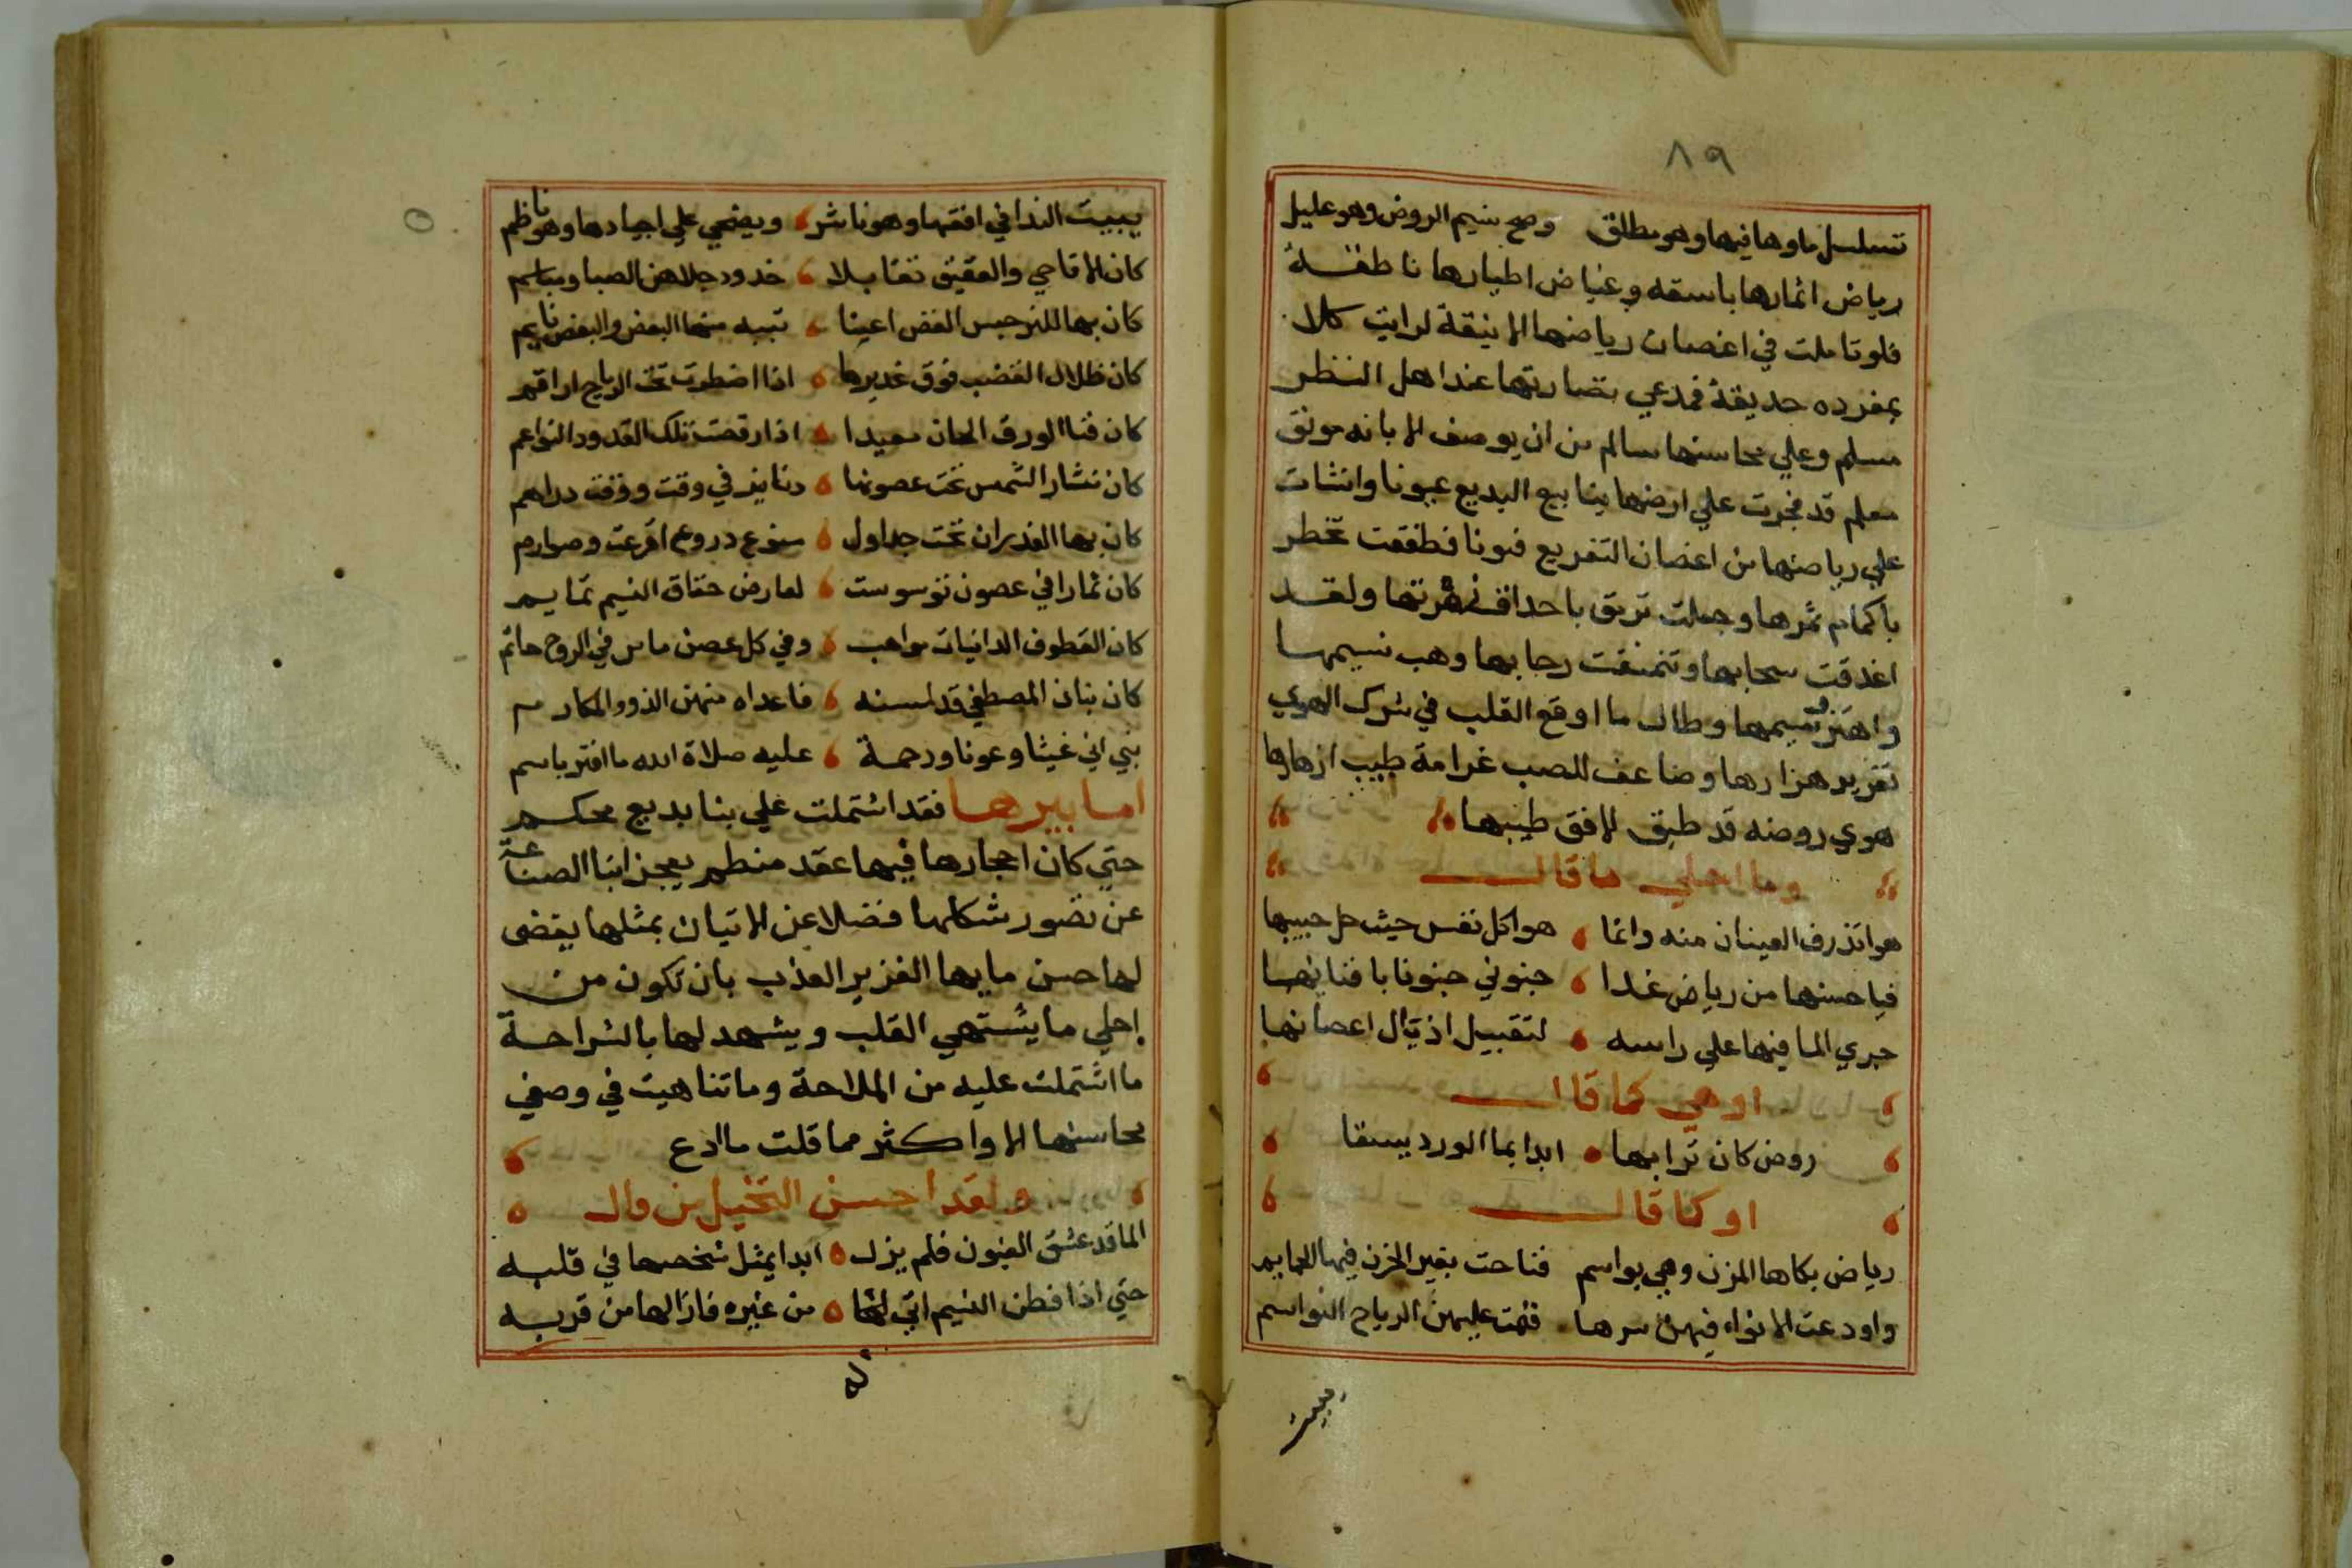 ٨٩
تسلسل ماوها فيها وهو مطلق وصح بنسيم الروض وهو عليل
رياض اثمارها باسقه وغياض اطيارها ناطقة
فلو تاملت في اغصان رياضها الانيقة لرايت كلا
بمفرده حديقة فمدعي نضارتها عند اهل النظر
مسلم وعلي محاسنها سالم من ان يوصف الا بانه مونق
معلم قد فجرت علي ارضها ينابيع البديع عيونا وانشات
علي رياضها من اغصان التفريع فنونا فطفقت تخطر
باكمام ثمرها وجعلت تريق باحداق زهرتها ولقد
اغدقت سحابها وتنمنقت رحابها وهب نسيمها
واهتز وسيمها وطال ما اوقع القلب في شرك الهوي
تغريد هزارها وضاعف للصب غرامة طيب ازهارها
هوي روضه قد طبق الافق طيبها
وما احلي ما قال
هوا تذرف العينان منه وانما هوا كل نفس حيث حل حبيبها
فيا حسنها من رياض غدا جنوني جنونا بافنانها
جري الما فيها علي راسه لتقبيل اذيال اغصانها
او هي كما قال
روض كان ترابها ابدا بما الورد يسقا
او كما قال
رياض بكاها المزن وهي بواسم فناحت بغير الحزن فيها الحمايم
واودعت الانواء فيهن سرها فنمت عليهن الرياح النواسم
يبيت
يبيت الندا في افقها وهو ناثر ويضحي علي اجيادها وهو ناظم
كان الاقاحي والعقيق تقابلا خدود جلاهن الصبا ومباسم
كان بها للنرجس الغض اعينا تنبه منها البعض والبعض نايم
كان ظلال القضب فوق غديرها اذا اضطربت تحت الرياح اراقم
كان غنا الورق الحان معبدا اذا رقصت تلك القدود النواعم
كان نثار الشمس تحت غصونها دنانير في وقت ووقت دراهم
كان بها الغدران تحت جداول متوع دروع افرغت وصوارم
كان ثمارا في غصون توسوست لعارض خفاق النسيم تمايم
كان القطوف الدانيات مواهب وفي كل غصن ماس في الروح حاتم
كان بنان المصطفي قد لمسنه فاعداه منهن الذوو المكارم
نبي اتي غيثا وعونا ورحمة عليه صلاة الله ما افتر باسم
اما بيرها فقد اشتملت علي بنا بديع محكم
حتي كان احجارها فيها عقد منظم يعجز ابنا الصناعة
عن تصور شكلها فضلا عن الاتيان بمثلها يقضى
لها حسن مايها الغزير العذب بان تكون من
احلي ما يشتهي القلب ويشهد لها بالشراحة
ما اشتملت عليه من الملاحة وما تناهيت في وصفي
محاسنها الا واكثر مما قلت ما ادع
ولقد احسن التخيل من قال
الما قد عشق الغصون فلم يزل ابدا يمثل شخصها في قلبه
حتي اذا فطن النسيم اتي لها من غيره فازالها من قربه
له